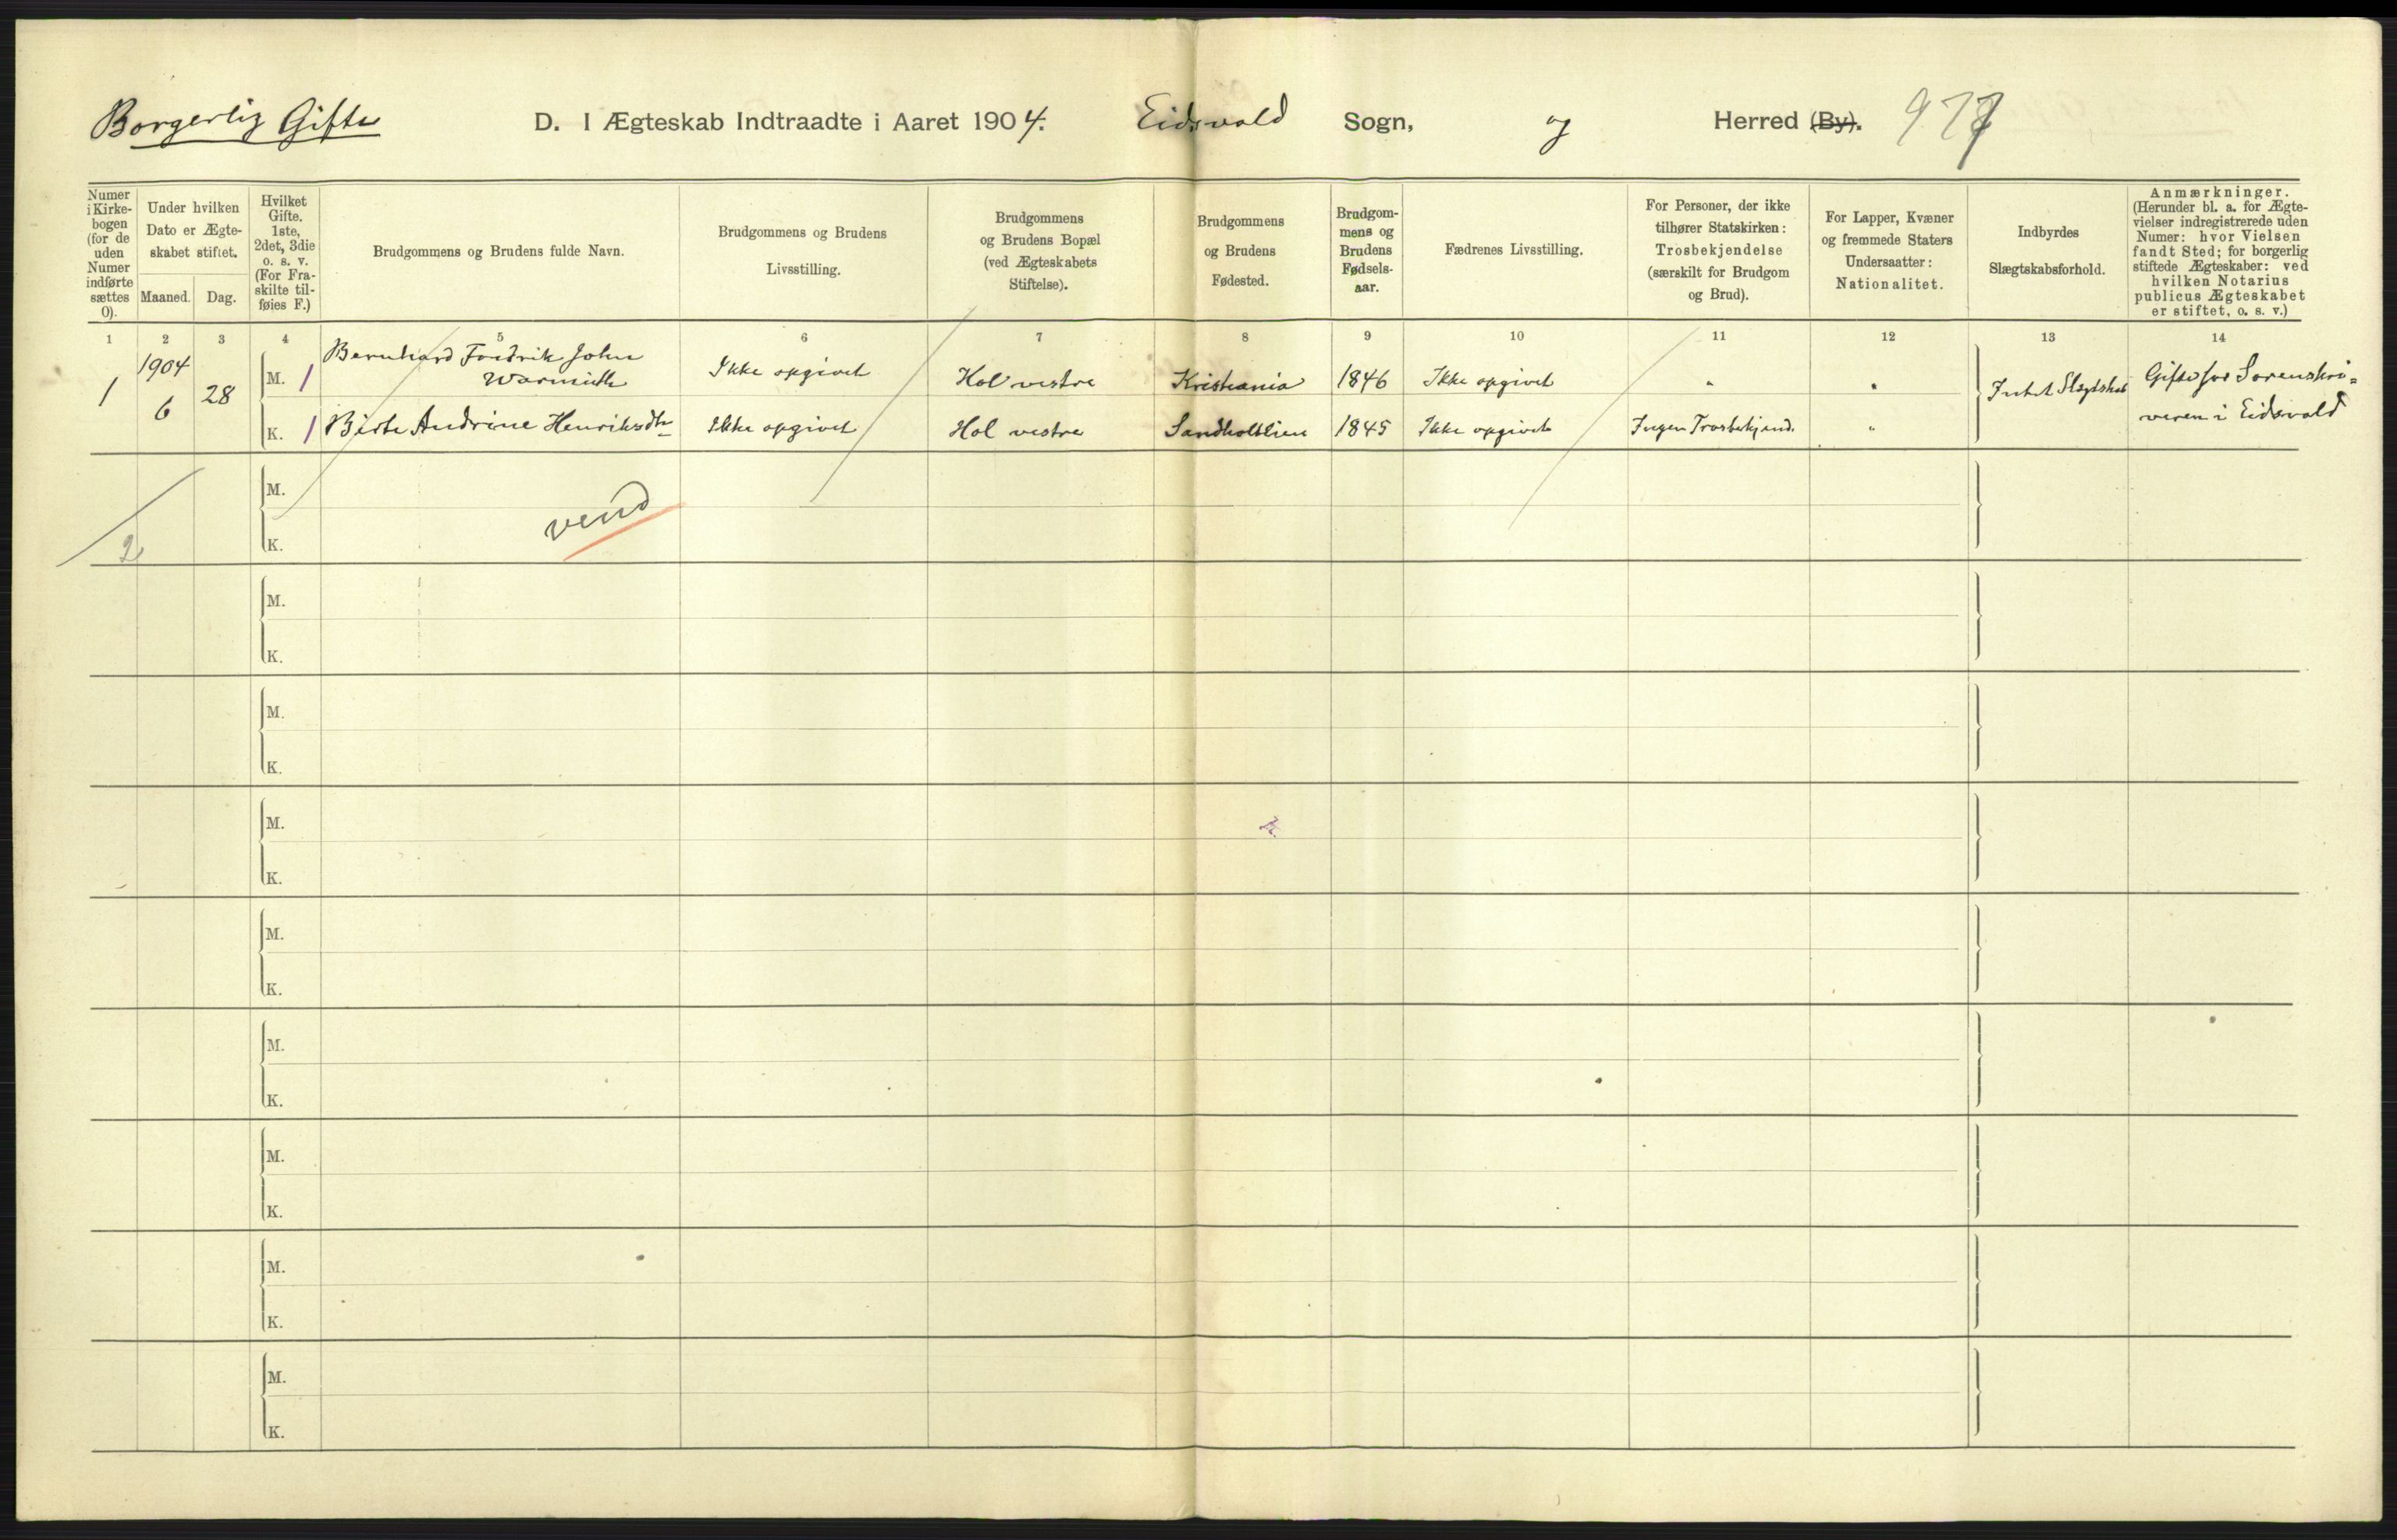 Borgerlig Gifte D. I Ægteskab Indtraadte i Aaret 1904. Eidsvold Sogn, og Herred (By). 977
Numer i Kirke-bogen (for de uden Numer indførte sættes 0).
Under hvilken Dato er Ægte-skabet stiftet.
Maaned. Dag.
Hvilket Gifte. 1ste, 2det, 3die o. s. v. (For Fra-skilte til-føies F.)
Brudgommens og Brudens fulde Navn.
Brudgommens og Brudens Livsstilling.
Brudgommens og Brudens Bopæl (ved Ægteskabets Stiftelse).
Brudgommens og Brudens Fødested.
Brudgom-mens og Brudens Fødsels-aar.
Fædrenes Livsstilling.
For Personer, der ikke tilhører Statskirken: Trosbekjendelse (særskilt for Brudgom og Brud).
For Lapper, Kvæner og fremmede Staters Undersaatter: Nationalitet.
Indbyrdes Slægtskabsforhold.
Anmærkninger. (Herunder bl. a. for Ægte-vielser indregistrerede uden Numer: hvor Vielsen fandt Sted; for borgerlig stiftede Ægteskaber: ved hvilken Notarius publicus Ægteskabet er stiftet, o. s. v.)
1 2 3 4 5 6 7 8 9 10 11 12 13 14
1 1904 6 28 M. 1 Bernhard Fredrik John Warmuth Ikke opgivet Hol vestre Kristiania 1846 Ikke opgivet " " Intet Slægtskab Gifte for Sorenskri=
veren i Eidsvold
K. 1 Birte Andrine Henriksdtr Ikke opgivet Hol vestre Sandholtlien 1845 Ikke opgivet Ingen Trosbekjend. "
M.
2 K. vend
M.
K.
M.
K.
M.
K.
M.
K.
M.
K.
M.
K.
M.
K.
M.
K.